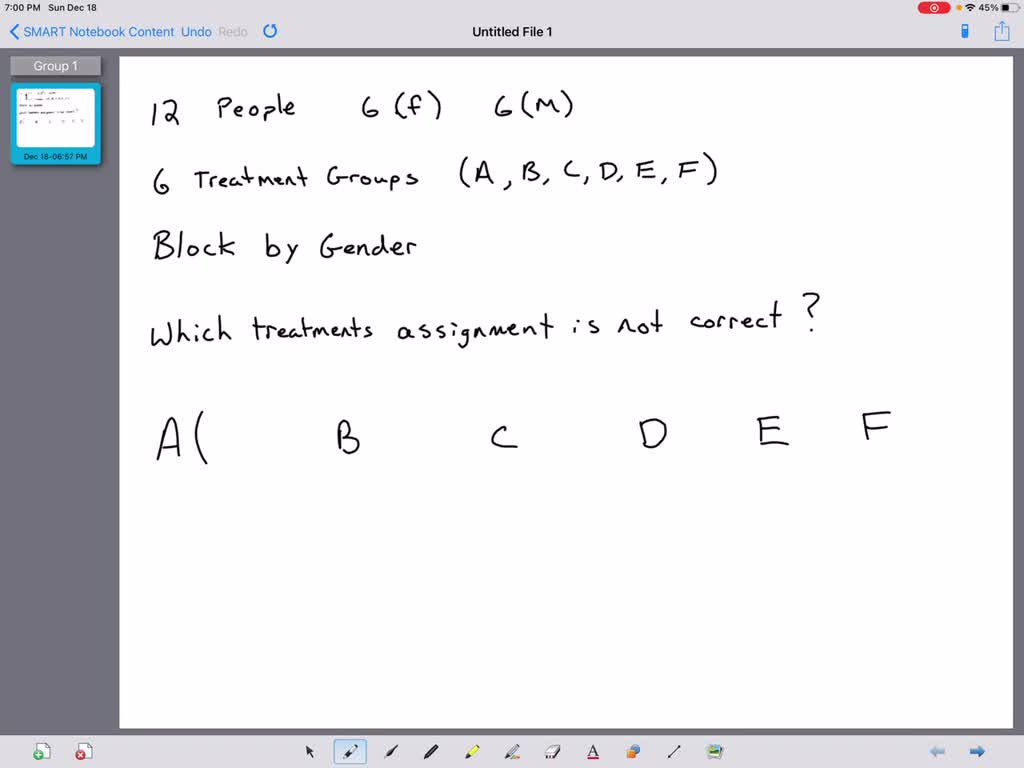 7:00 PM Sun Dec 18
45%
SMART Notebook Content Undo Redo
Untitled File 1
Group 1
Dec 18-06:57 PM
12 People 6 (f) 6 (M)
6 Treatment Groups (A, B, C, D, E, F)
Block by Gender
Which treatments assignment is not correct?
A( B C D E F
A